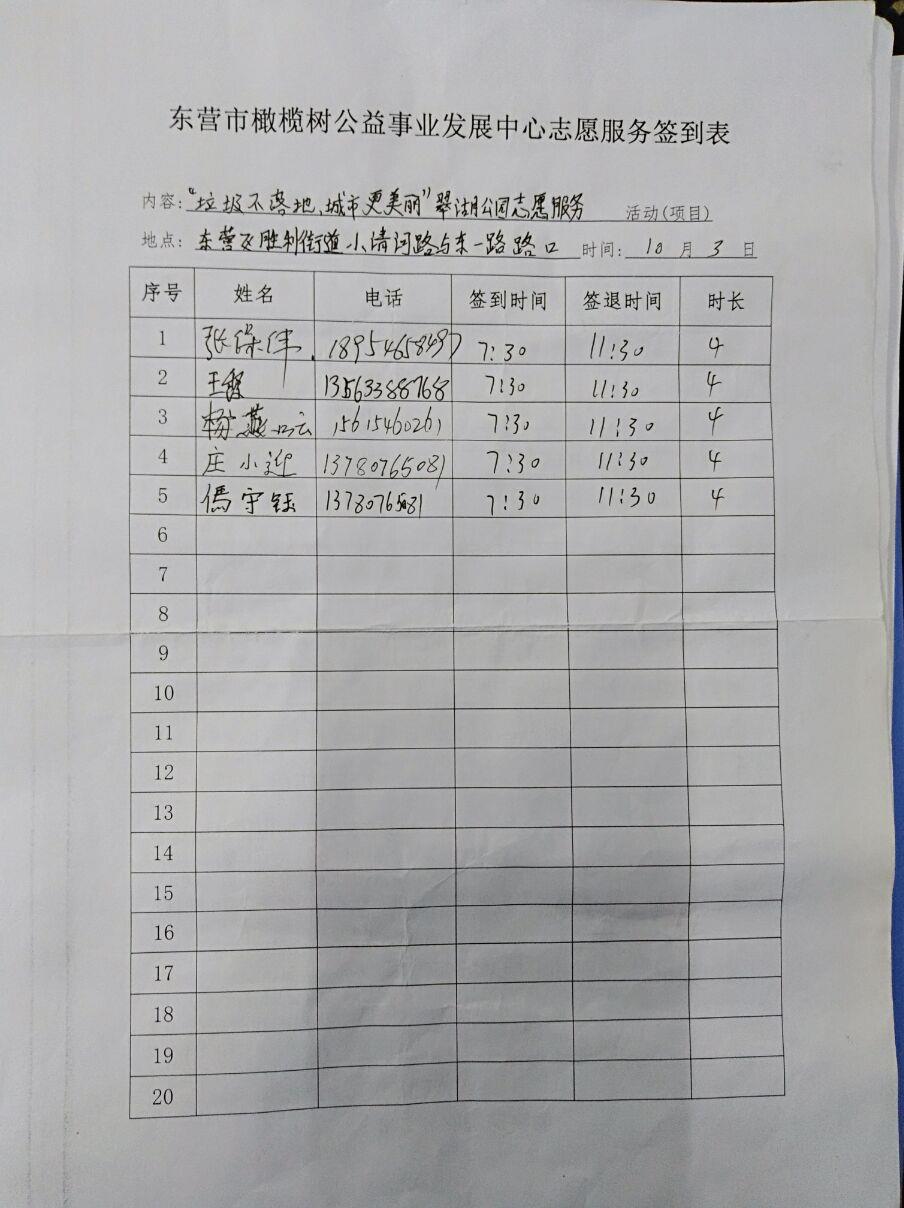 东营市橄榄树公益事业发展中心志愿服务签到表
内容:“垃圾不落地、城市更美丽”翠湖公园志愿服务 活动(项目)
地点: 东营区胜利街道小清河路与东一路路口 时间: 10 月 3 日
序号 姓名 电话 签到时间 签退时间 时长
1 张保伟 18954658497 7:30 11:30 4
2 王 13563388768 7:30 11:30 4
3 杨燕 15615460261 7:30 11:30 4
4 庄小迎 13780765081 7:30 11:30 4
5 守钰 13780765081 7:30 11:30 4
6
7
8
9
10
11
12
13
14
15
16
17
18
19
20